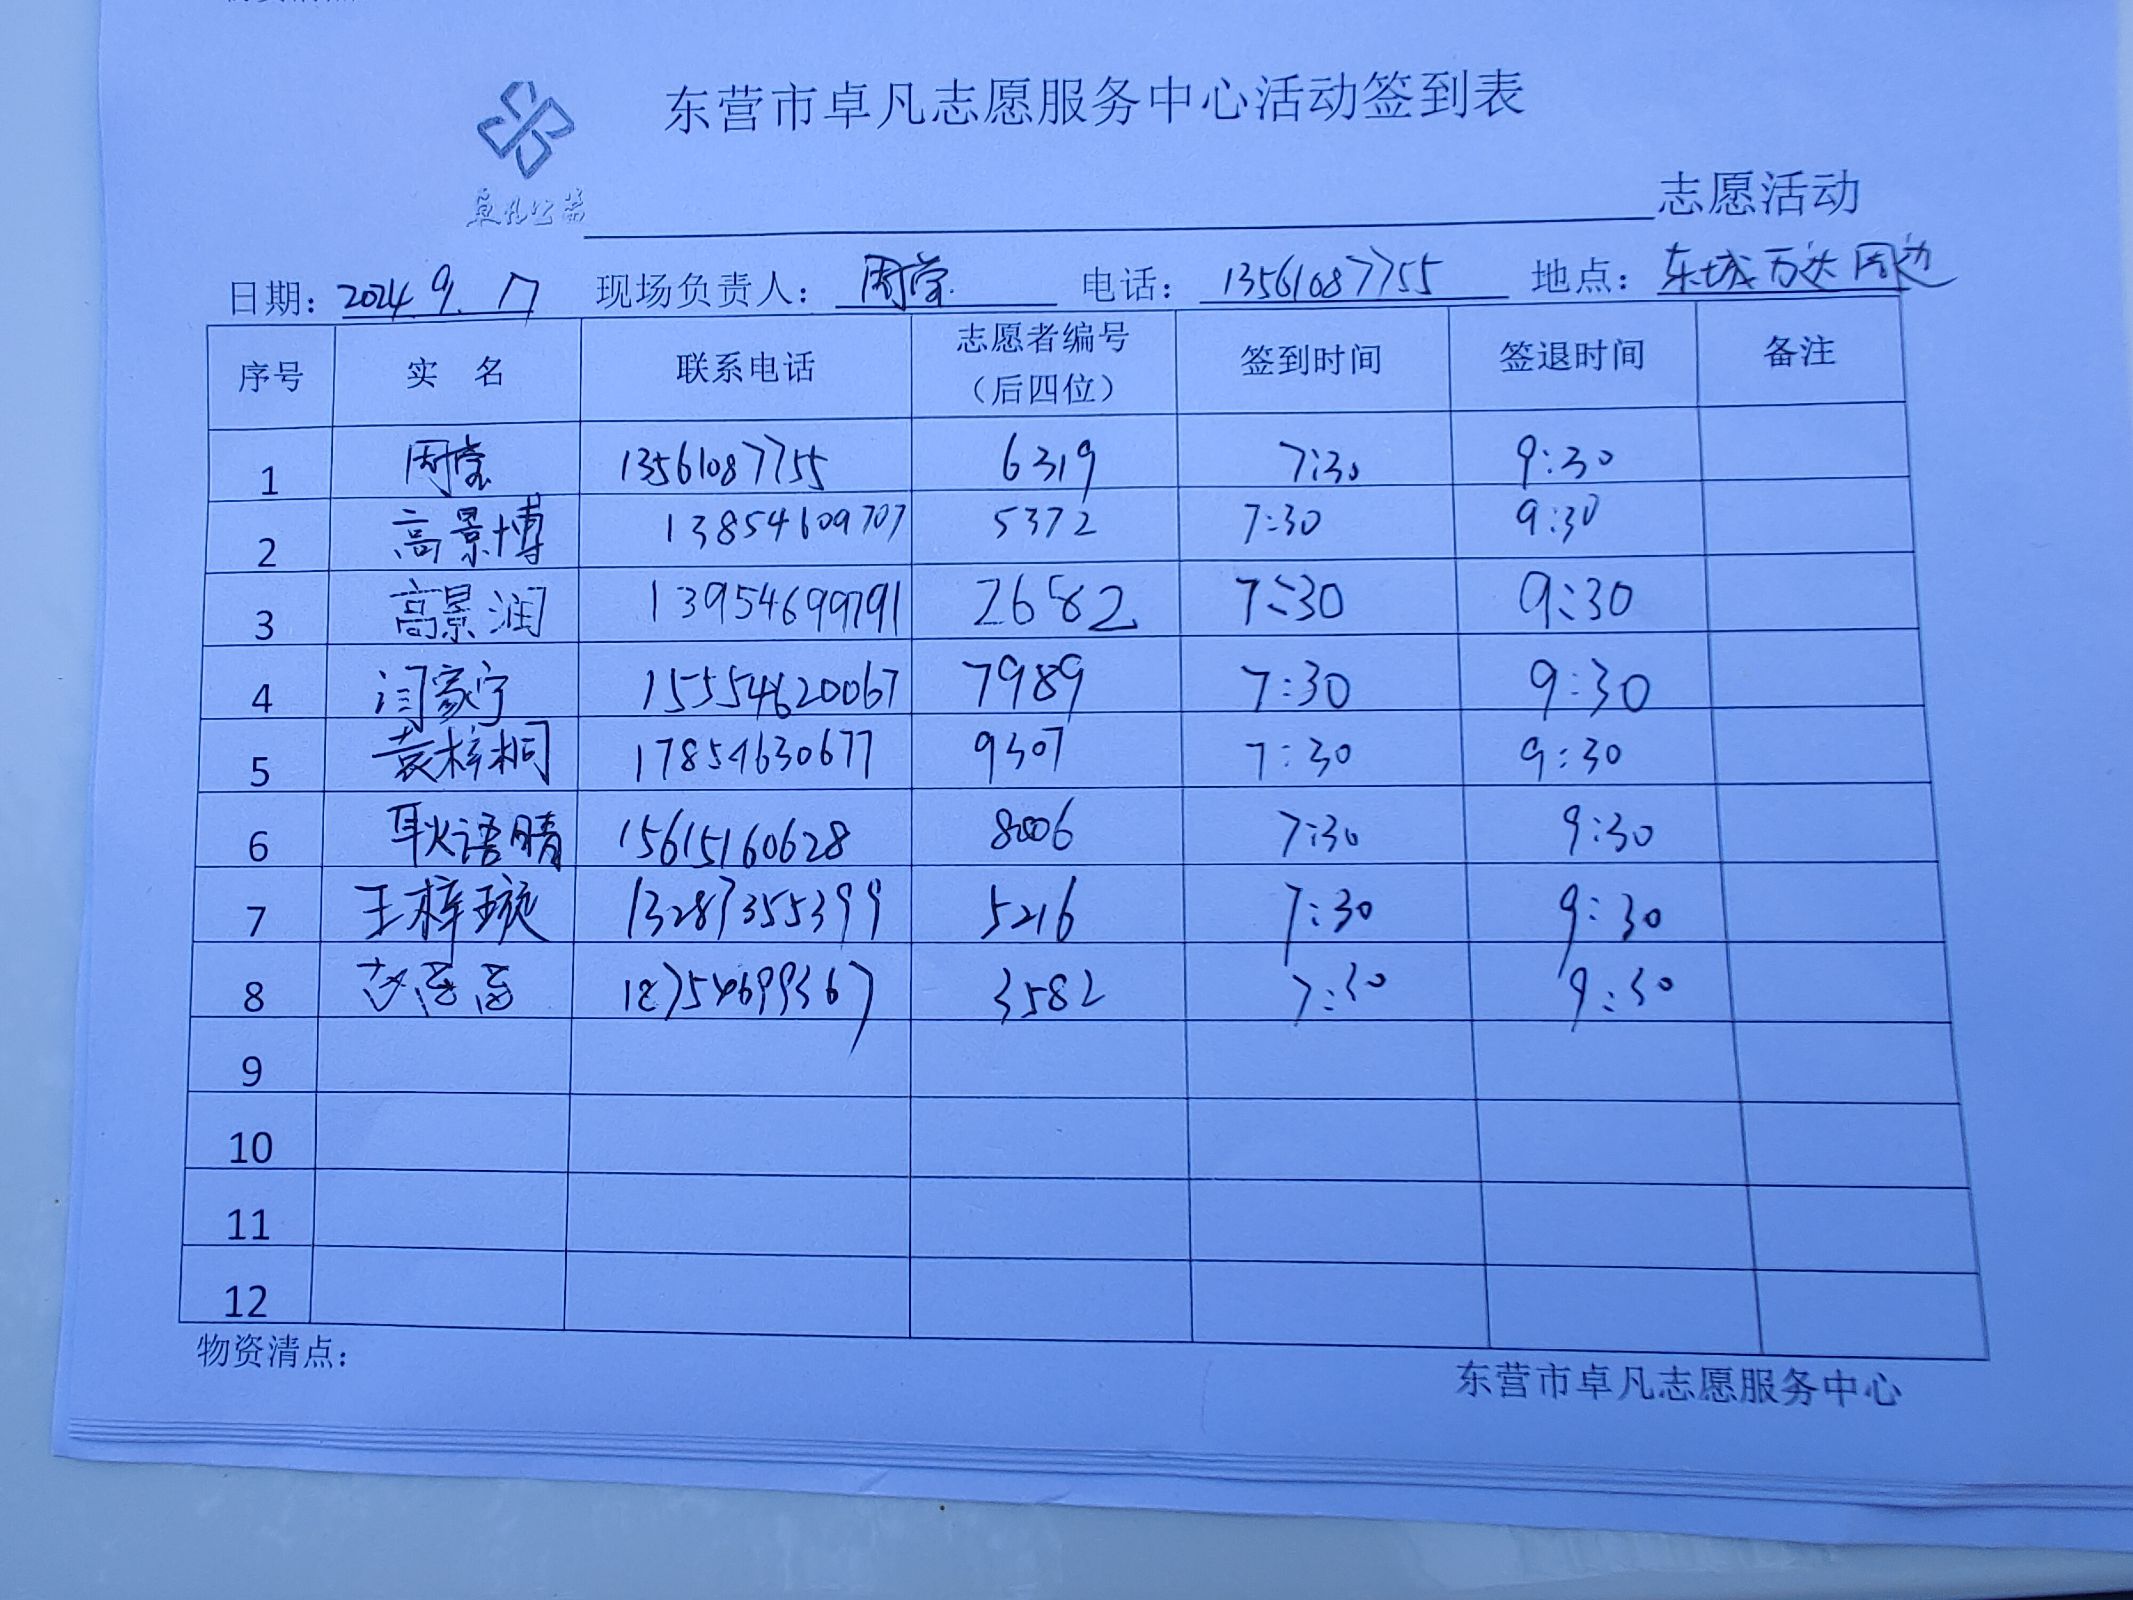 东营市卓凡志愿服务中心活动签到表
卓凡公益
志愿活动
日期: 2024.9.17 现场负责人: 周莹 电话: 13561087755 地点: 东城万达周边
序号 实 名 联系电话 志愿者编号（后四位） 签到时间 签退时间 备注
1 周莹 13561087755 6319 7:30 9:30
2 高景博 13854609707 5372 7:30 9:30
3 高景润 13954699791 2682 7:30 9:30
4 闫家宁 15554620067 7989 7:30 9:30
5 袁梓桐 17854630677 9307 7:30 9:30
6 耿语晴 15615160628 8006 7:30 9:30
7 王梓璇 13287355399 5216 7:30 9:30
8 18754699367 3582 7:30 9:30
9
10
11
12
物资清点:
东营市卓凡志愿服务中心